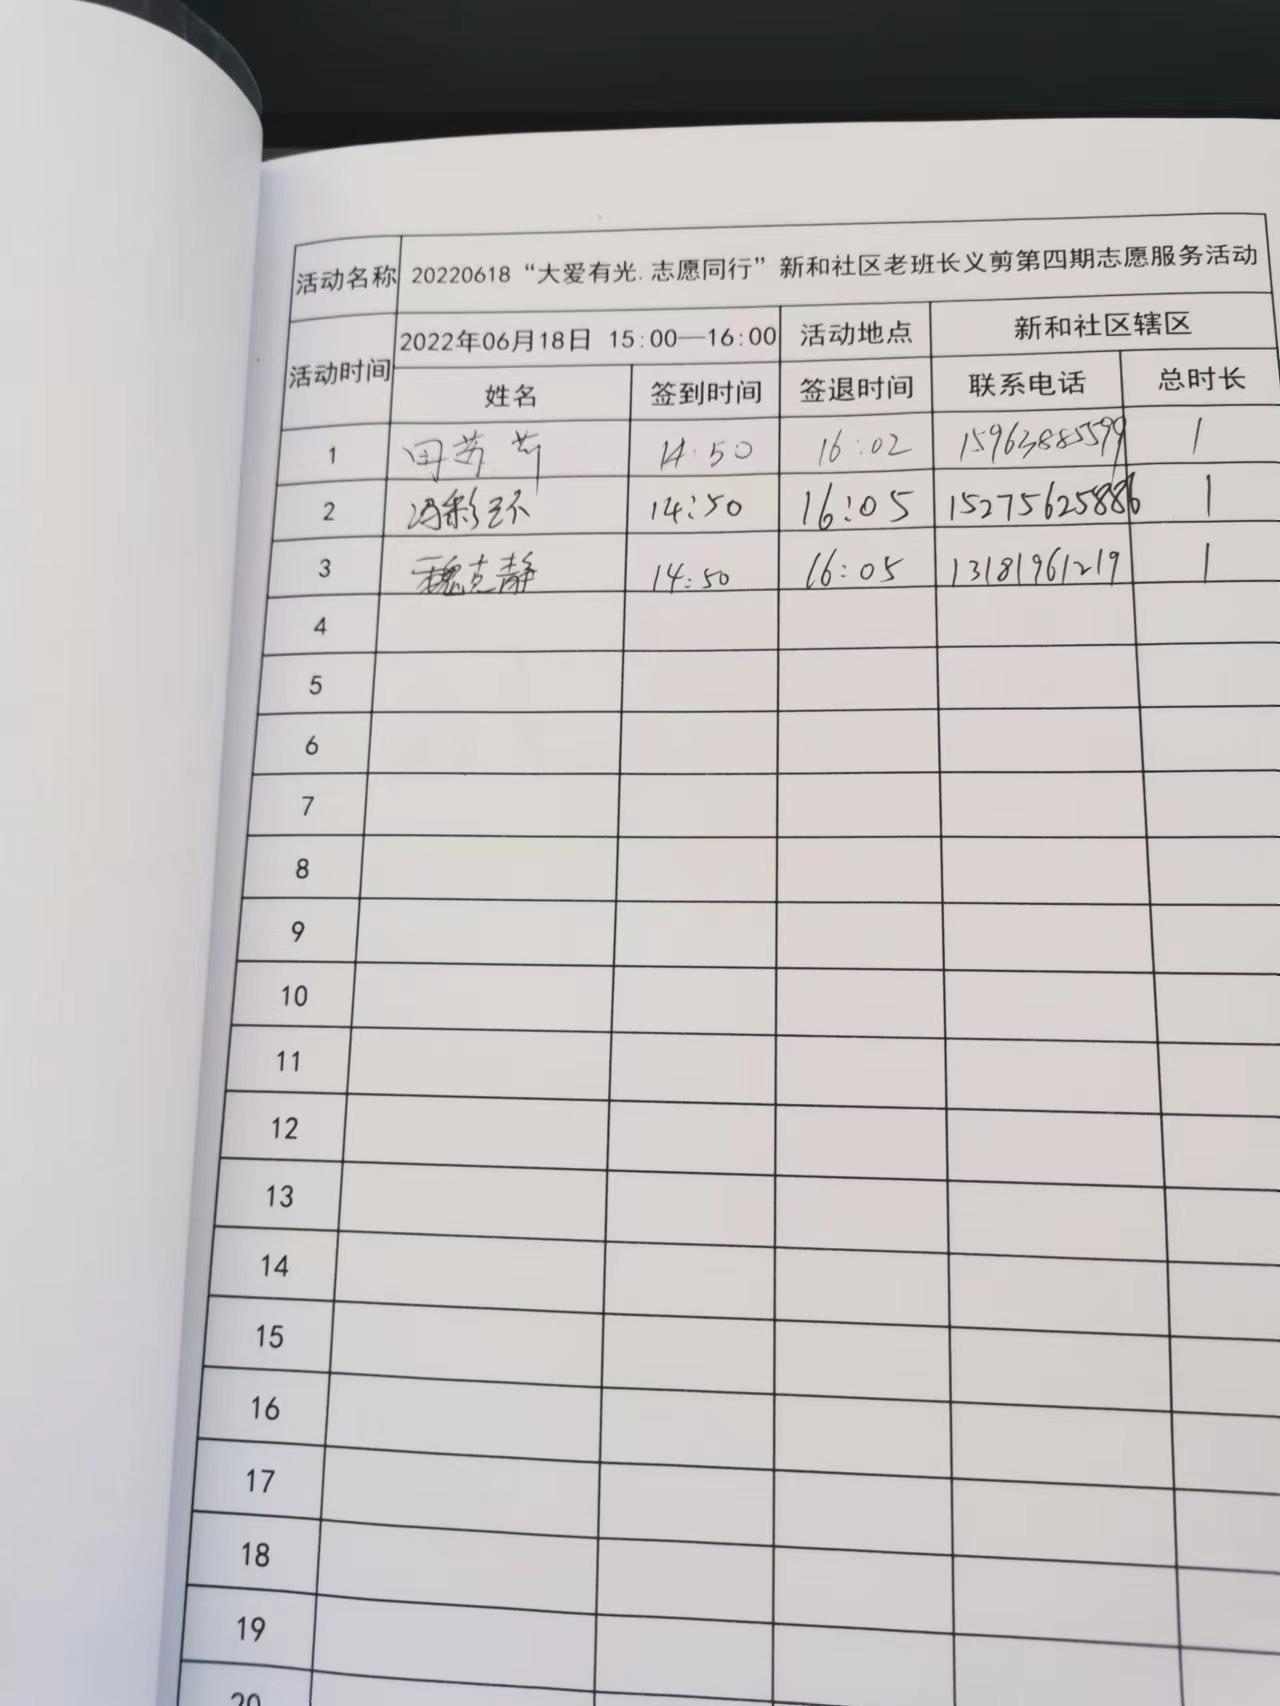 活动名称 20220618“大爱有光.志愿同行”新和社区老班长义剪第四期志愿服务活动
活动时间 2022年06月18日 15:00—16:00 活动地点 新和社区辖区
姓名 签到时间 签退时间 联系电话 总时长
1 14:50 16:02 15963885599 1
2 冯彩环 14:50 16:05 15275625886 1
3 魏克静 14:50 16:05 13181961219 1
4
5
6
7
8
9
10
11
12
13
14
15
16
17
18
19
20